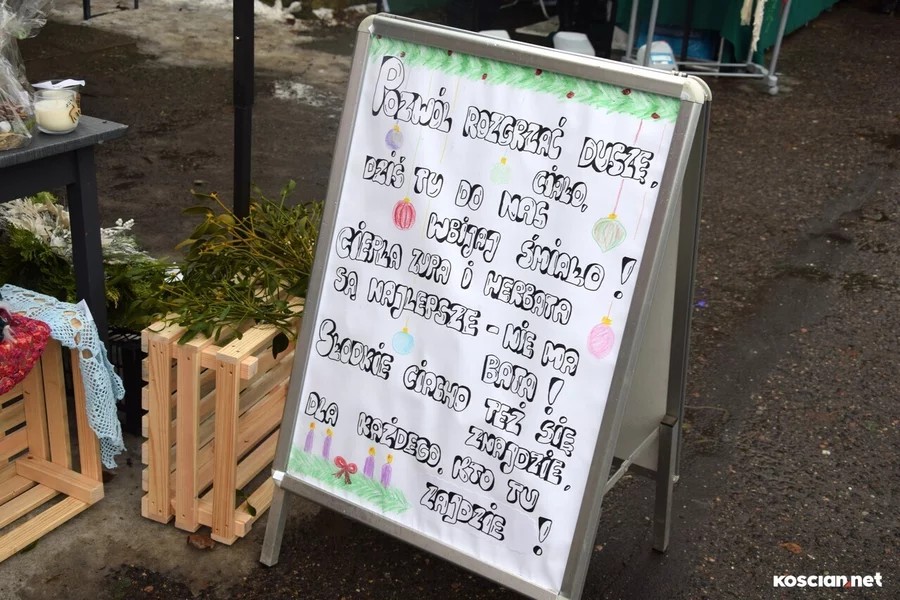 POZWÓL ROZGRZAĆ DUSZĘ,
CIAŁO,
DZIŚ TU DO NAS
WBIJAJ ŚMIAŁO!
CIEPŁA ZUPA I HERBATA
SĄ NAJLEPSZE - NIE MA
BATA!
SŁODKIE CIACHO TEŻ SIĘ
ZNAJDZIE,
DLA KAŻDEGO, KTO TU
ZAJDZIE!
KOSCIAN.NET